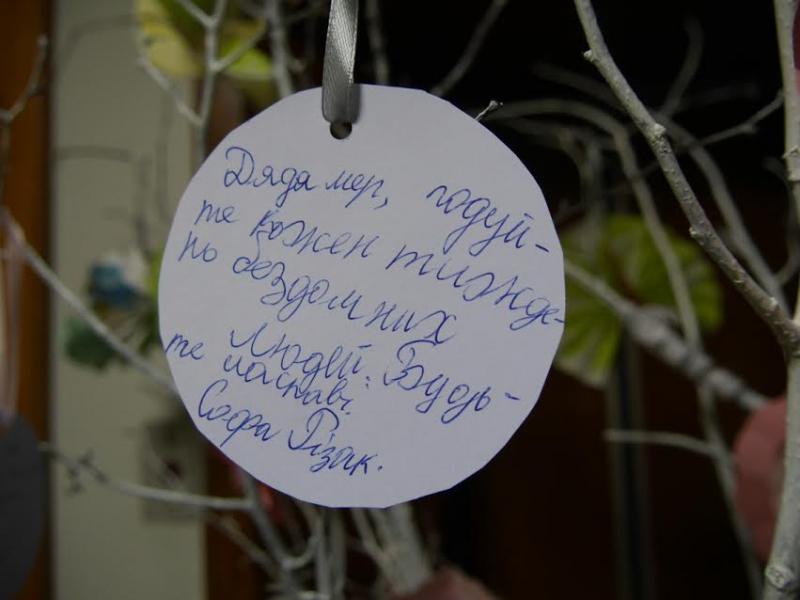 Дядя мер, годуй-
те кожен тижде-
нь бездомних
людей. Будь-
те ласкаві.
Софа Різак.